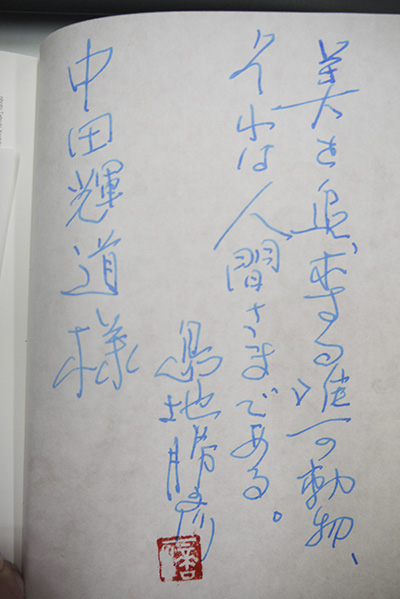 美を追求する唯一の動物、
それは人間さまである。
島地勝彦
中田輝道様